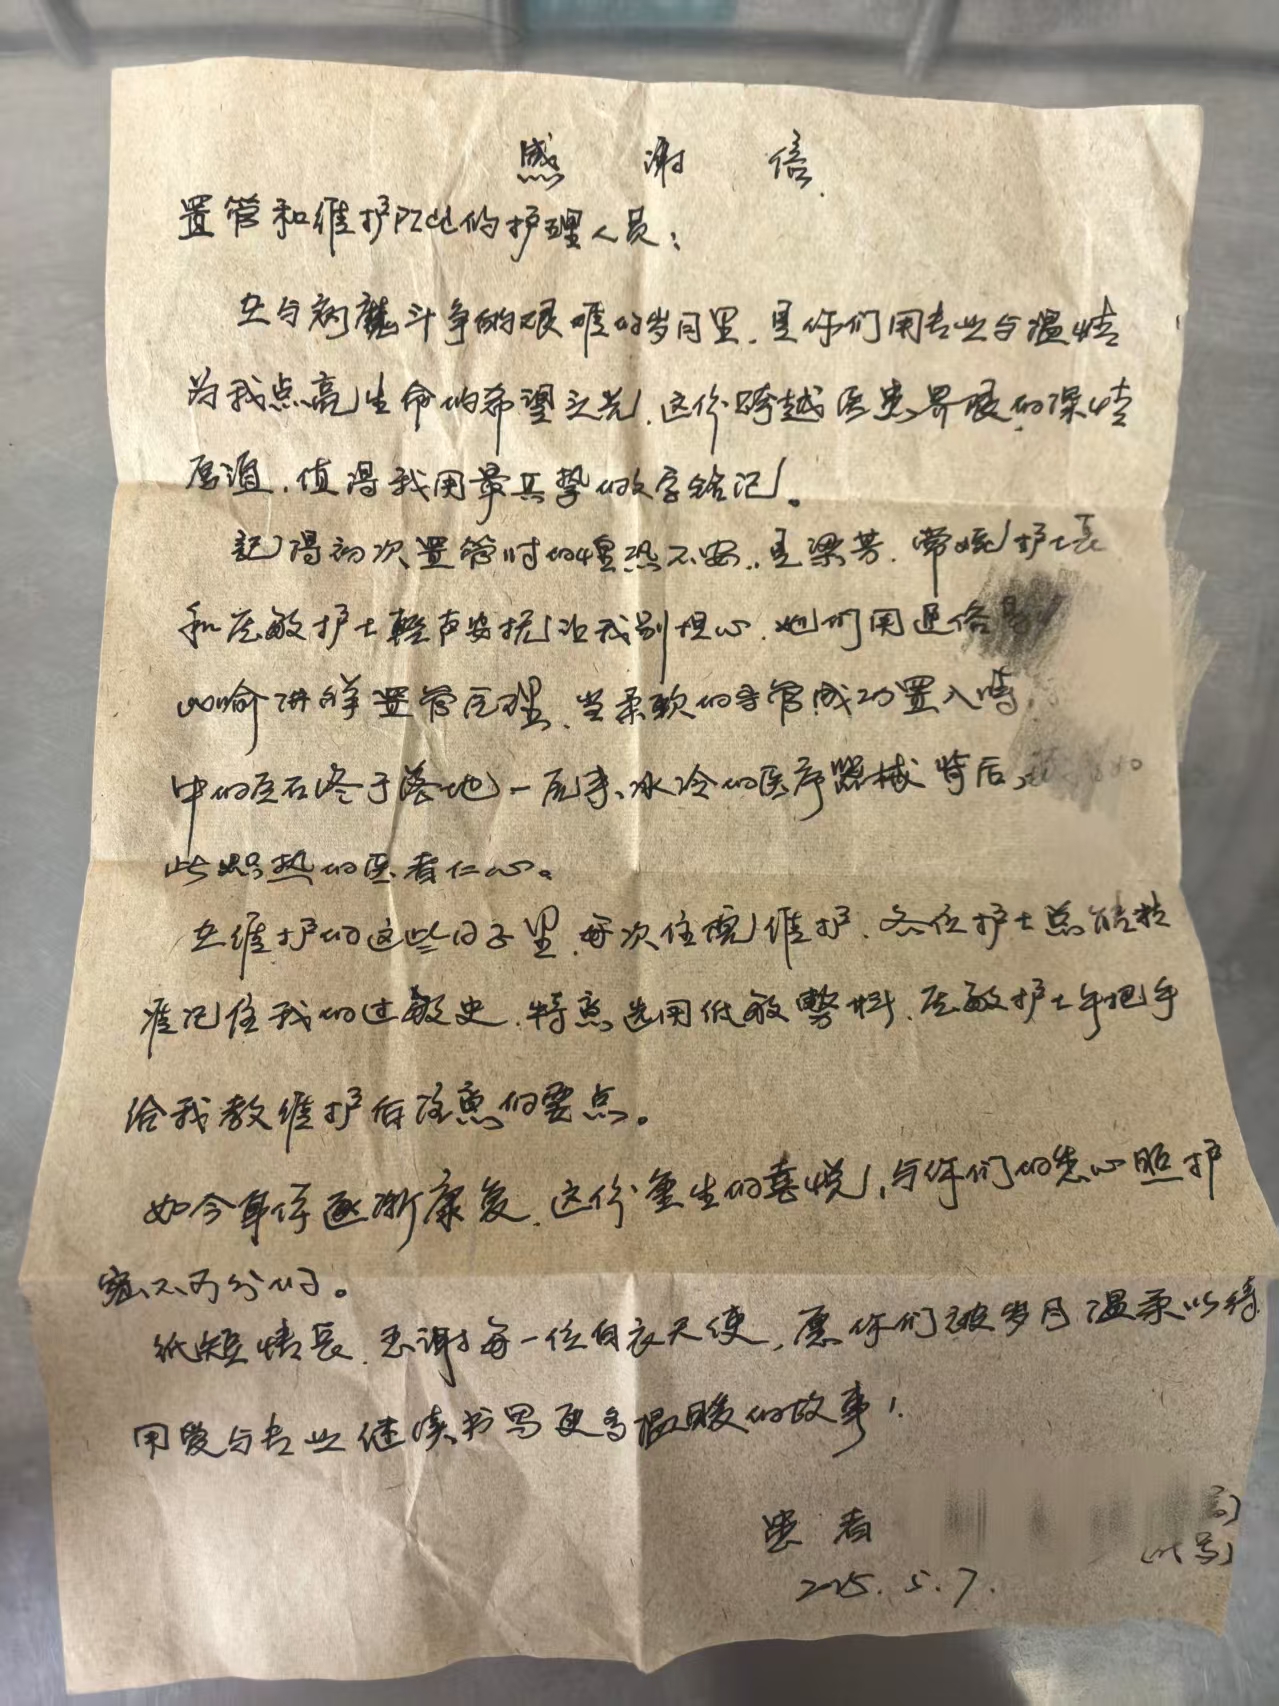 感谢信
置管和维护PICC的护理人员：
在与病魔斗争的艰难的岁月里，是你们用专业与温情
为我点亮生命的希望之光，这份跨越医患界限的深情
厚谊，值得我用最真挚的文字铭记。
记得初次置管时的惶恐不安，是梁芳、常婉护士长
和庞敏护士轻声安抚让我别担心，她们用通俗易
的喻讲解置管原理，当柔软的导管成功置入时，
中的巨石终于落地一原来，冰冷的医疗器械背后，
此炽热的医者仁心。
在维护的这些日子里，每次住院维护，各位护士总能精
准记住我的过敏史，特意选用低敏敷料，庞敏护士手把手
给我教维护后注意的要点。
如今身体逐渐康复，这份重生的喜悦，与你们的悉心照护
密不可分的。
纸短情长，感谢每一位白衣天使，愿你们被岁月温柔以待
用爱与专业继续书写更多温暖的故事！
患者
2025.5.7.